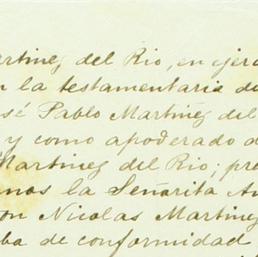 rtinez del Rio, en ejerc
n la testamentaria de
sé Pablo Martinez del
y como apoderado d
Martinez del Rio; pre
nos la Señorita An
on Nicolas Martinez
ba de conformidad